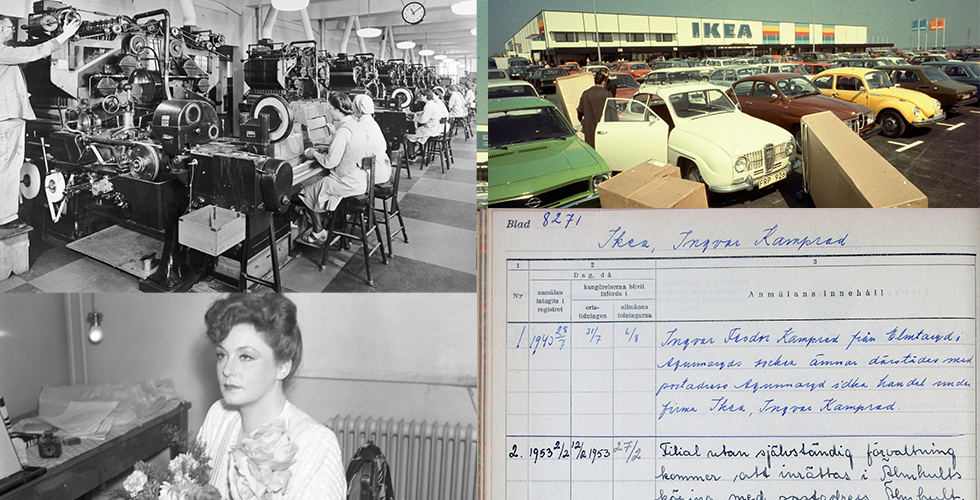 IKEA
FRP 926
Blad 8271
Ikea, Ingvar Kamprad
1 2 3
N:r
anmälan intagits i registret
Dag, då
kungörelserna blivit införda i
orts-tidningen
allmänna tidningarna
Anmälans innehåll
1 1943 28/7 31/7 6/8 Ingvar Feodor Kamprad från Elmtaryd i
Agunnaryds socken ämnar därstädes med
postadress Agunnaryd idka handel under
firma Ikea, Ingvar Kamprad.
2. 1953 2/2 12/2 1953 27/2 Filial utan självständig förvaltning
kommer att inrättas i Älmhults
köping med postadress Älmhult